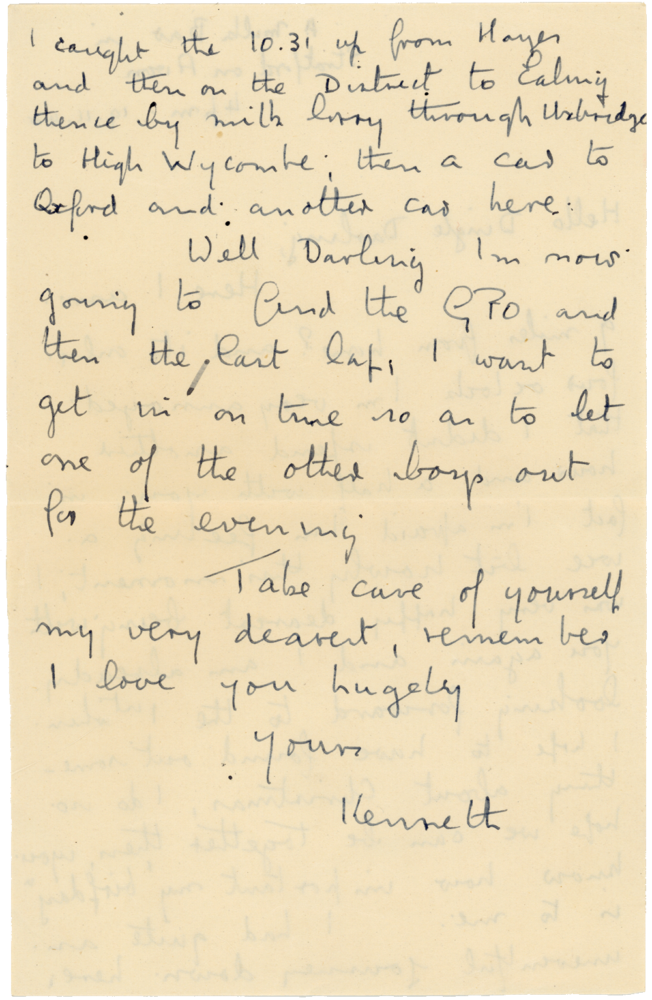 I caught the 10.31 up from Hayes
and then on the District to Ealing
thence by milk lorry through Uxbridge
to High Wycombe; then a car to
Oxford and another car here.
Well Darling I'm now
going to find the GPO and
then the last lap, I want to
get in on time so as to let
one of the other boys out
for the evening
Take care of yourself
my very dearest, remember
I love you hugely
Yours
Kenneth